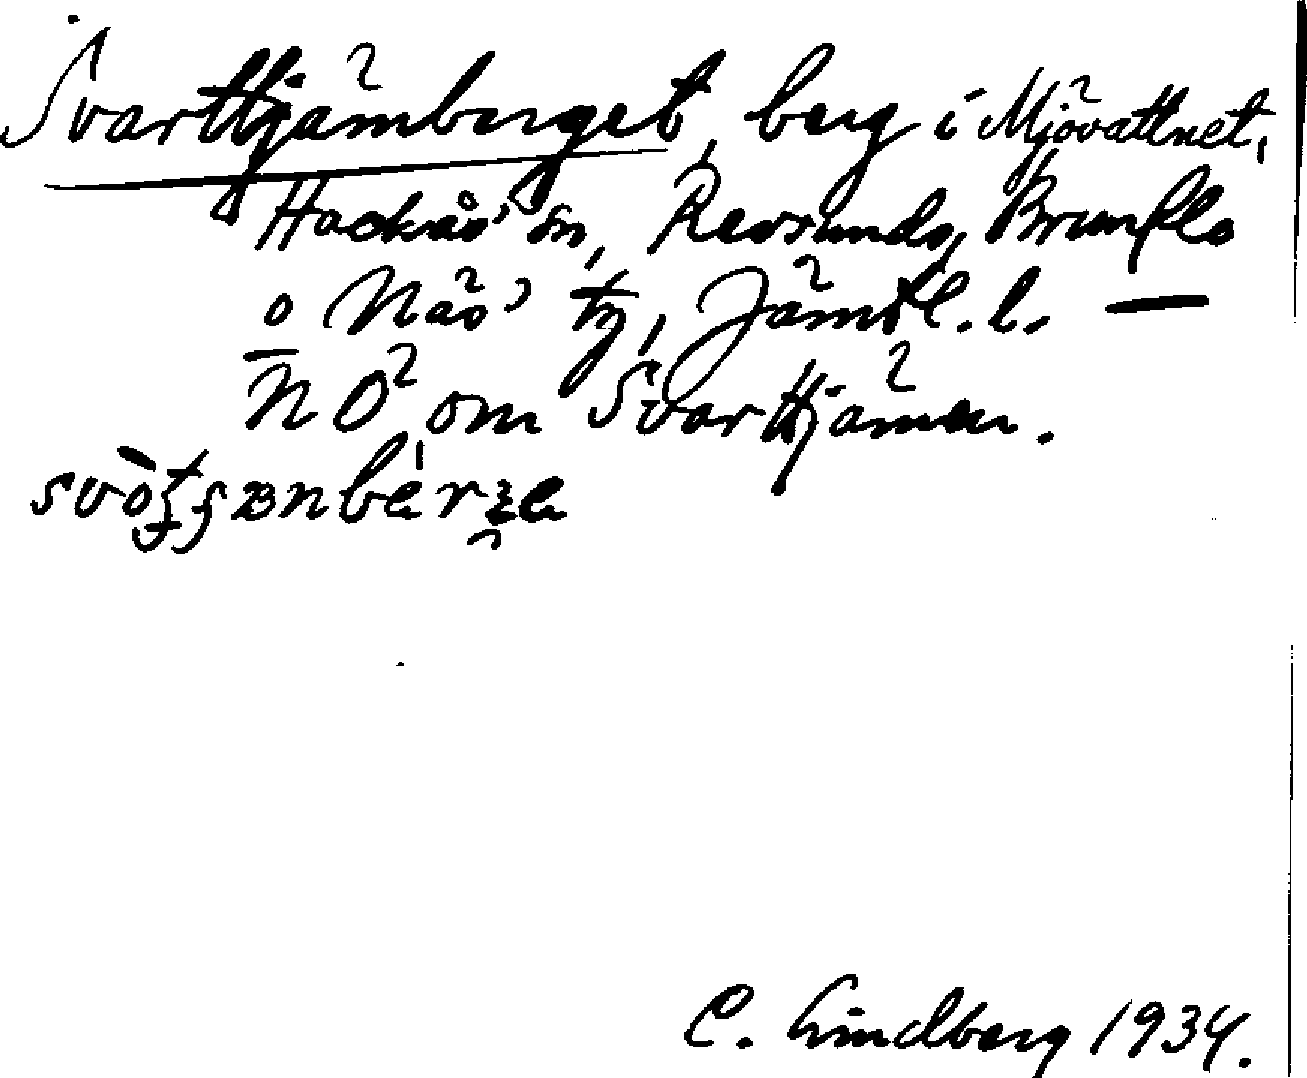 Svarttjämberget, berg i Mjövattnet,
Hackås' sn, Revsunds, Brunflo
o Näs' tg, Jämtl. l. —
NÖ om Svarttjämen.
C. Lindberg 1934.